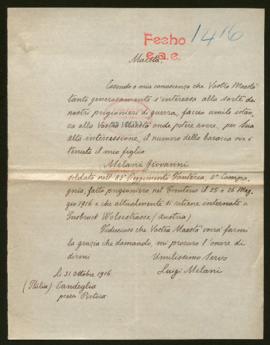 Fecho
e.a.e.
1416
Maestà.
Essendo a mia conoscenza che Vostra Maestà
tanto generosamente s'interessa alla sorte dei
nostri prigionieri di guerra, faccio umile istan-
za alla Vostra Maestà onde poter avere, per Sua
alta intercessione, il numero della baracca ove è
tenuto il mio figlio
Melani Giovanni
soldato nell' 83° Reggimento Fanteria, 2ª Compa-
gnia, fatto prigioniero nel Trentino il 25 o 26 Mag-
gio 1916 e che attualmente si ritiene internato a
(Austria)
Fiducioso che Vostra Maestà vorrà farmi
la grazia che domando, mi procuro l'onore di
dirmi
Umilissimo Servo
Luigi Melani
li 31 Ottobre 1916
(Italia) Candeglia
presso Pistoia